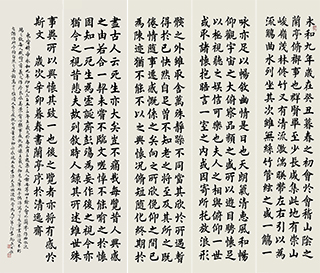 永和九年歲在癸丑暮春之初會於會稽山陰之
蘭亭脩禊事也群賢畢至少長咸集此地有崇山
峻嶺茂林脩竹又有清流激湍映帶左右引以為
流觴曲水列坐其次雖無絲竹管絃之盛一觴一
詠亦足以暢敘幽情是日也天朗氣清惠風和暢
仰觀宇宙之大俯察品類之盛所以遊目騁懷足
以極視聽之娛信可樂也夫人之相與俯仰一世
或取諸懷抱晤言一室之內或因寄所託放浪形
骸之外雖取舍萬殊靜躁不同當其欣於所遇暫
得於己快然自足曾不知老之將至及其所之既
倦情隨事遷感慨係之矣向之所欣俛仰之間已
為陳迹猶不能不以之興懷況脩短隨化終期於
盡古人云死生亦大矣豈不痛哉每覽昔人興感
之由若合一契未嘗不臨文嗟悼不能喻之於懷
固知一死生為虛誕齊彭殤為妄作後之視今亦
猶今之視昔悲夫故列敘時人錄其所述雖世殊
事異所以興懷其致一也後之覽者亦將有感於
斯文 歲次辛卯暮春書蘭亭序於清逸齋